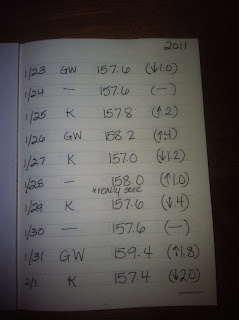 2011
1/23 GW 157.6 (↓1.0)
1/24 — 157.6 (—)
1/25 K 157.8 (↑.2)
1/26 GW 158.2 (↑.4)
1/27 K 157.0 (↓1.2)
1/28 — 158.0 (↑1.0)
*really sore
1/29 K 157.6 (↓.4)
1/30 — 157.6 (—)
1/31 GW 159.4 (↑1.8)
2/1 K 157.4 (↓2.0)